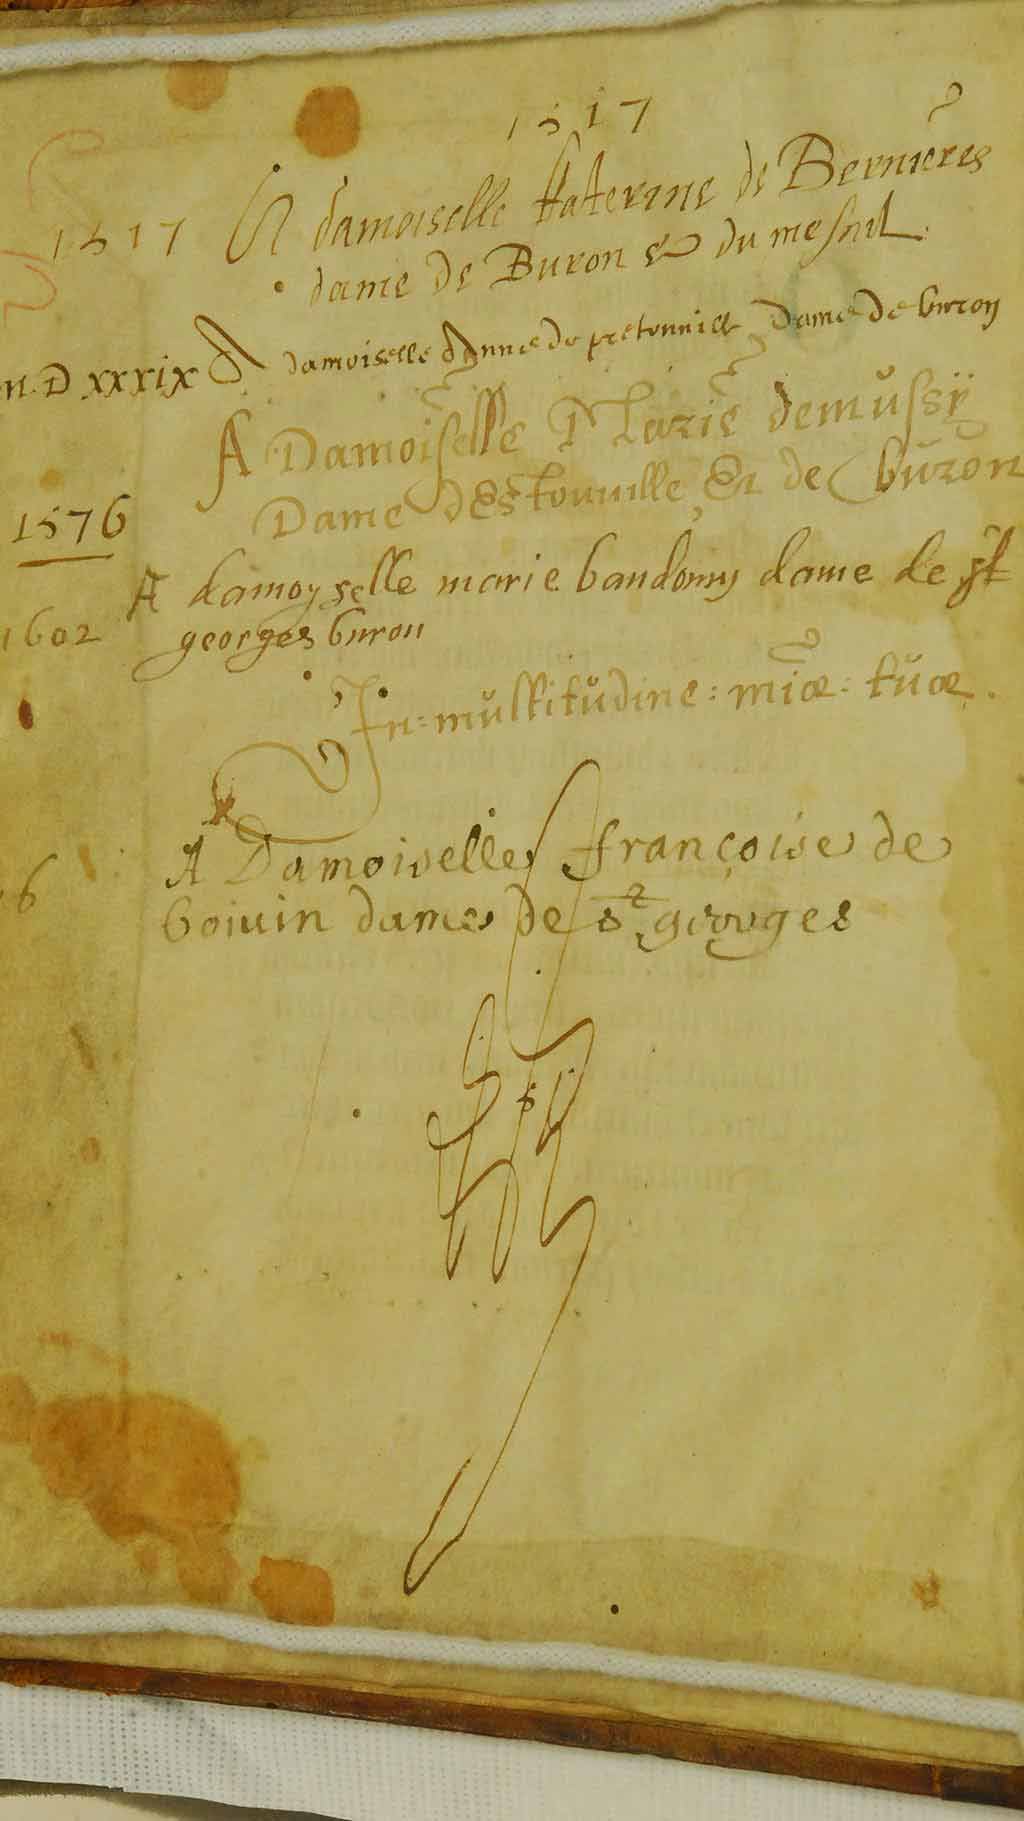 1517
1517 A damoiselle Katerine de Bernieres
dame de Buron & du mesnil.
n. D xxxix A damoiselle Anne de pretouville Dame de buron
A Damoiselle Marie de mussÿ
1576 Dame destouuille, Et de buron
A damoyselle marie baudouin dame de st
1602 georges buron
In: multitudine: miæ: tuæ.
A Damoiselle françoise de
6 boiuin dame de st georges